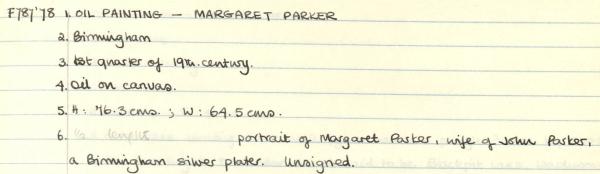 F787'78 1. OIL PAINTING — MARGARET PARKER
2. Birmingham
3. 1st quarter of 19th. century.
4. Oil on canvas.
5. H: 76.3 cms. ; W: 64.5 cms.
6. ½ length portrait of Margaret Parker, wife of John Parker,
a Birmingham silver plater. Unsigned.